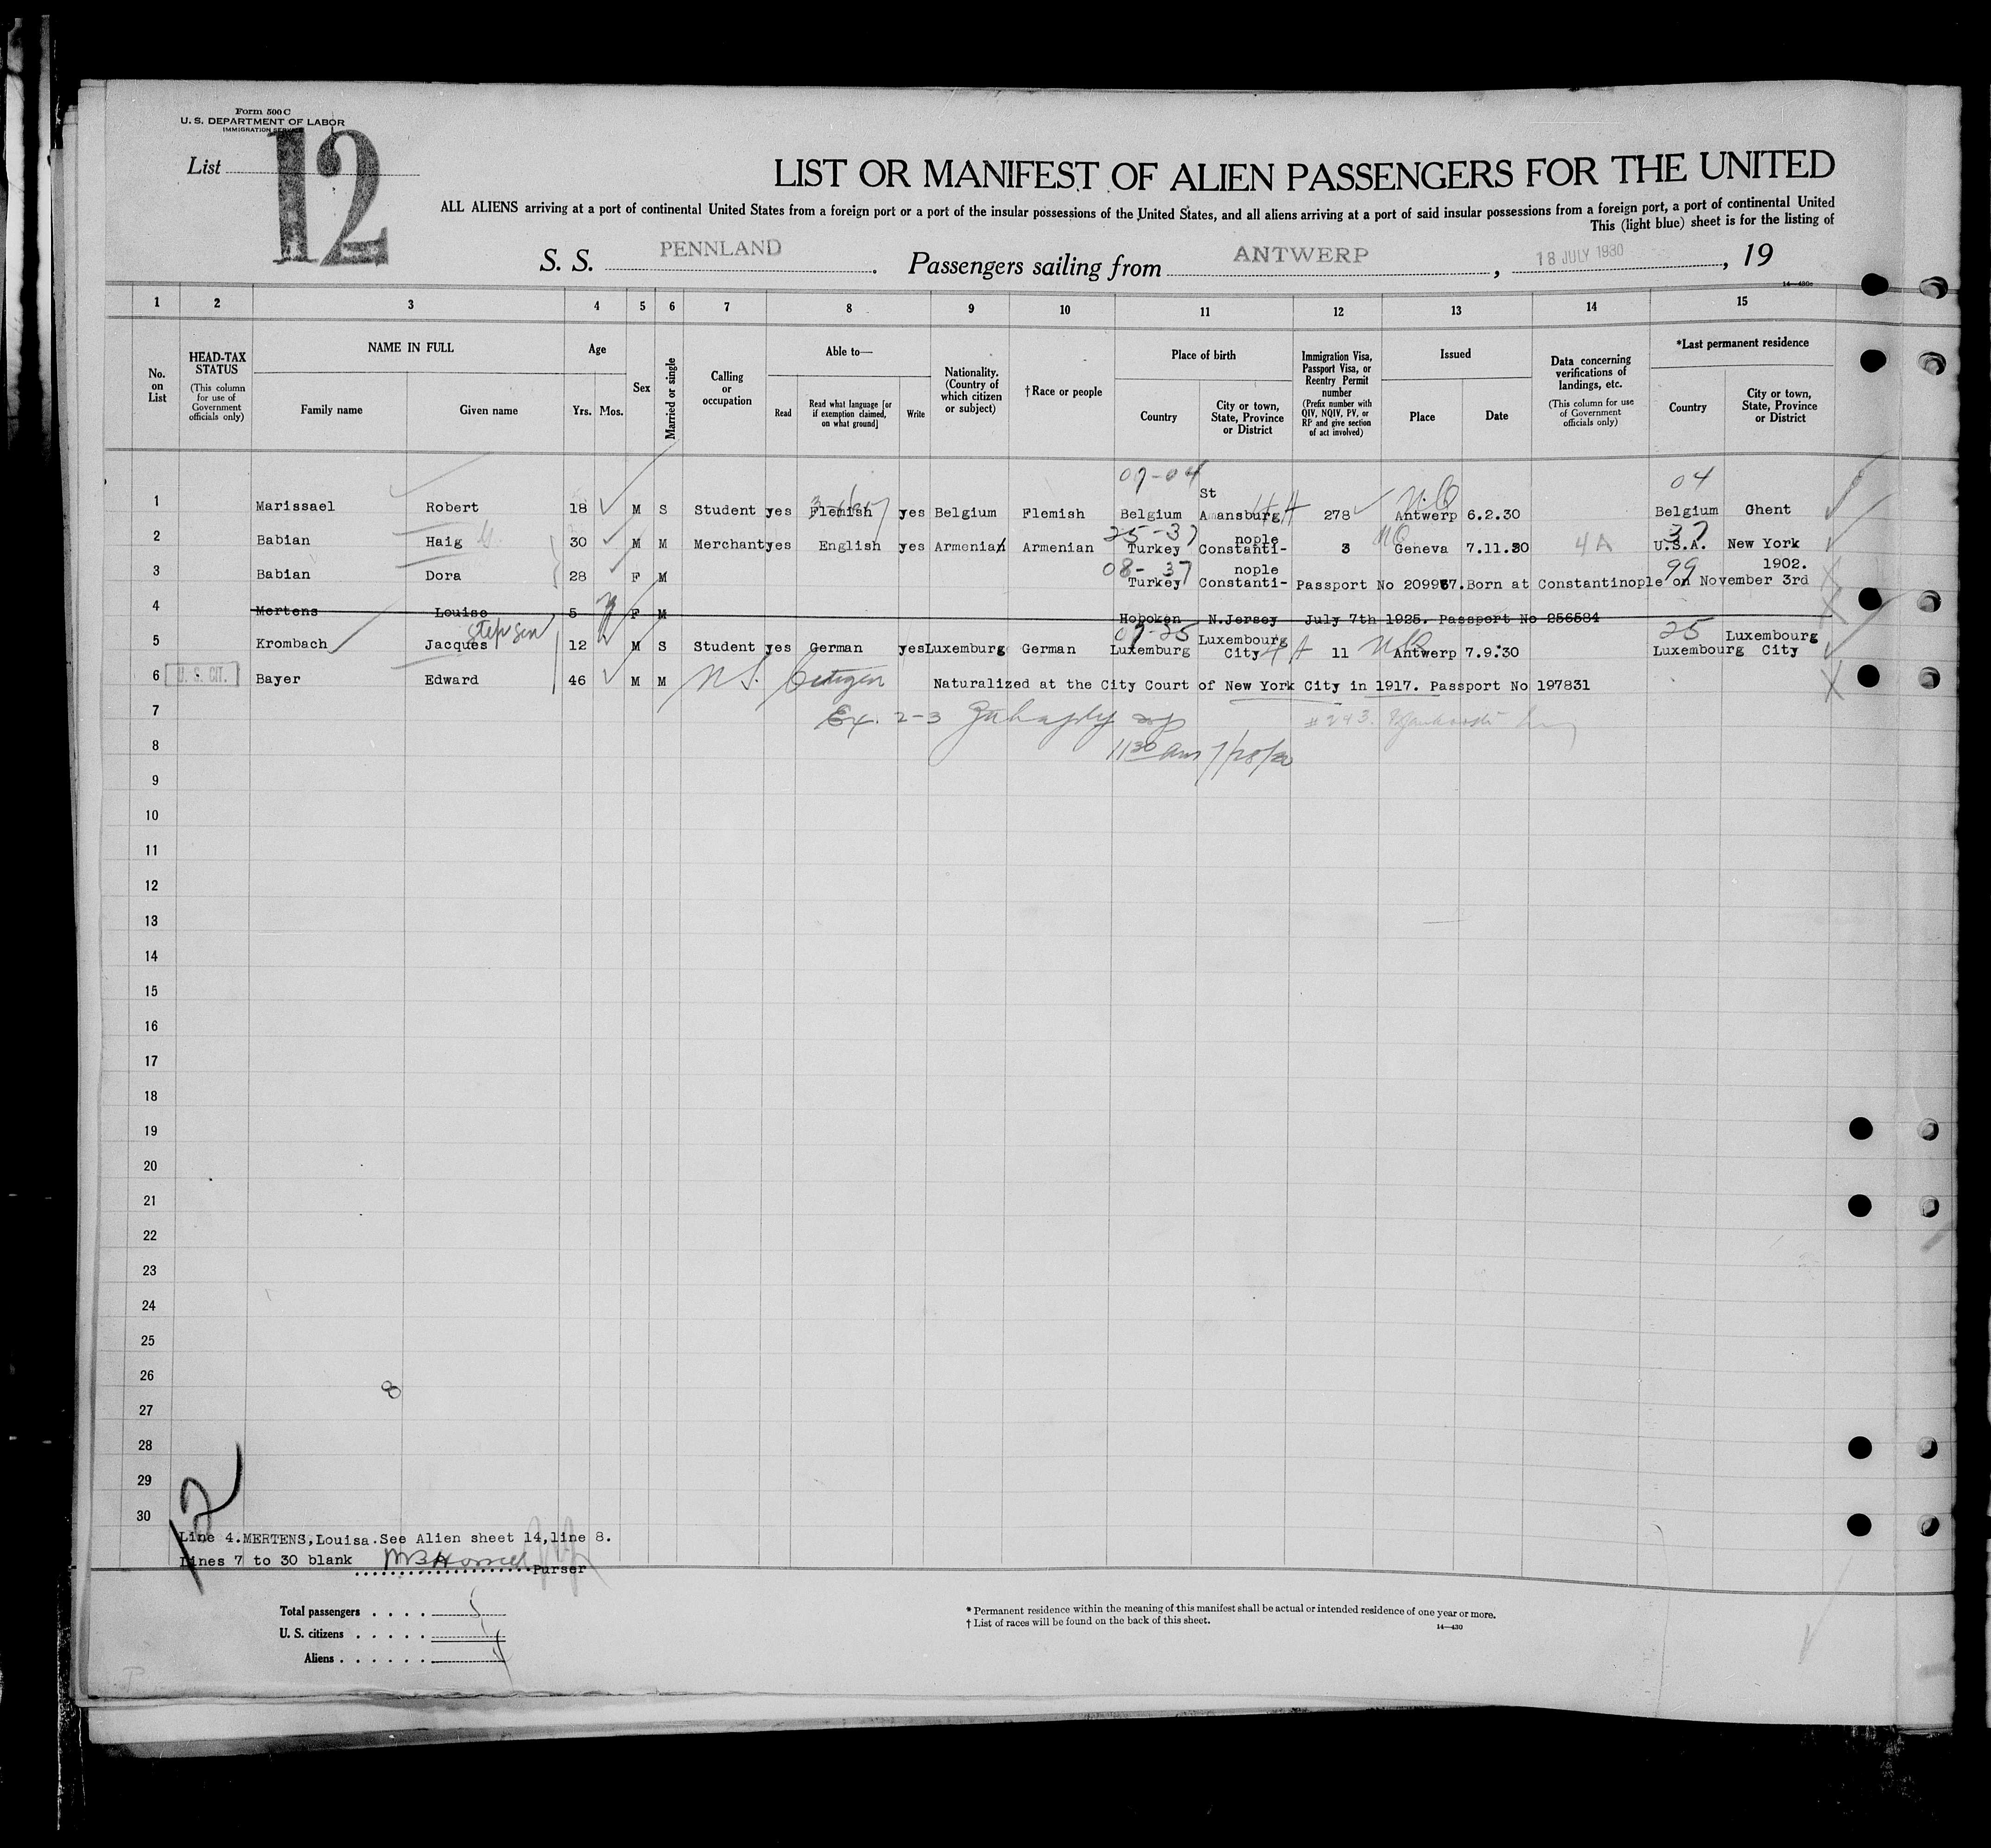 Form 500 C
U. S. DEPARTMENT OF LABOR
IMMIGRATION SERVICE
List 12
LIST OR MANIFEST OF ALIEN PASSENGERS FOR THE UNITED
ALL ALIENS arriving at a port of continental United States from a foreign port or a port of the insular possessions of the United States, and all aliens arriving at a port of said insular possessions from a foreign port, a port of continental United
This (light blue) sheet is for the listing of
S. S. PENNLAND. Passengers sailing from ANTWERP, 18 JULY 1930, 19
14—430c
1 2 3 4 5 6 7 8 9 10 11 12 13 14 15
No. on List
HEAD-TAX STATUS (This column for use of Government officials only)
NAME IN FULL
Family name Given name
Age
Yrs. Mos.
Sex
Married or single
Calling or occupation
Able to—
Read Read what language [or if exemption claimed, on what ground] Write
Nationality. (Country of which citizen or subject)
†Race or people
Place of birth
Country City or town, State, Province or District
Immigration Visa, Passport Visa, or Reentry Permit number (Prefix number with QIV, NQIV, PV, or RP and give section of act involved)
Issued
Place Date
Data concerning verifications of landings, etc. (This column for use of Government officials only)
*Last permanent residence
Country City or town, State, Province or District
07-04 04
St
1 Marissael Robert 18 M S Student yes Flemish yes Belgium Flemish Belgium Amansburg 4 A 278 Antwerp 6.2.30 Belgium Ghent
25-37 nople 37
2 Babian Haig G. 30 M M Merchant yes English yes Armenian Armenian Turkey Constanti- 3 NQ Geneva 7.11.30 4 A U.S.A. New York
08-37 nople 99 1902.
3 Babian Dora 28 F M Turkey Constanti- Passport No 209957. Born at Constantinople on November 3rd
4 Mertens Louise 5 F M Hoboken N.Jersey July 7th 1925. Passport No 256584
step son 07-25 Luxembourg 25 Luxembourg
5 Krombach Jacques 12 M S Student yes German yes Luxemburg German Luxemburg City 4 A 11 Antwerp 7.9.30 Luxembourg City
6 U. S. CIT. Bayer Edward 46 M M Citizen Naturalized at the City Court of New York City in 1917. Passport No 197831
7 Ex. 2-3
8 11 30 am 7/28/30
9
10
11
12
13
14
15
16
17
18
19
20
21
22
23
24
25
26 8
27
28
29
30
12
Line 4.MERTENS,Louisa.See Alien sheet 14,line 8.
Lines 7 to 30 blank Purser
Total passengers . . . .
U. S. citizens . . . . .
Aliens . . . . . .
* Permanent residence within the meaning of this manifest shall be actual or intended residence of one year or more.
† List of races will be found on the back of this sheet.
14—430